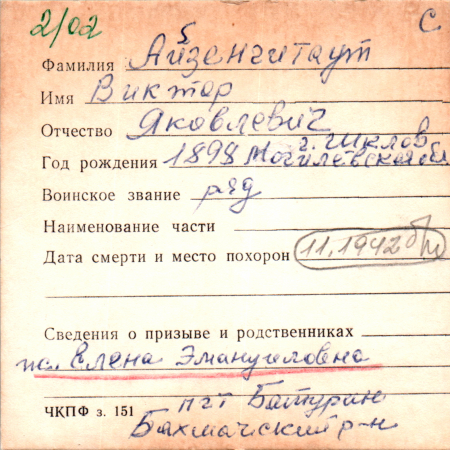 2/02 С
Фамилия Айзенгитаут
б
Имя Виктор
Отчество Яковлевич
г. Шклов
Год рождения 1898 Могилевская обл
Воинское звание ряд
Наименование части
Дата смерти и место похорон 11.1942 б/п
Сведения о призыве и родственниках
ж. Елена Эмануиловна
ЧКПФ з. 151 пгт Батурин
Бахмачский р-н